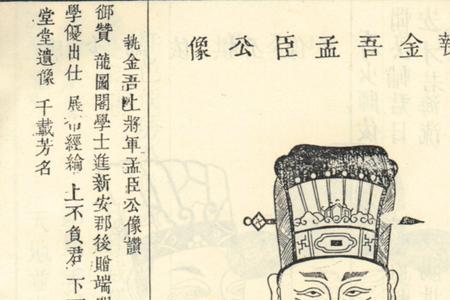 執金吾孟臣公像
執金吾上將軍孟臣公像讚
御贊 龍圖閣學士進新安郡後贈端
學優出仕 展布經綸 上不負君 下
堂堂遺像 千載芳名